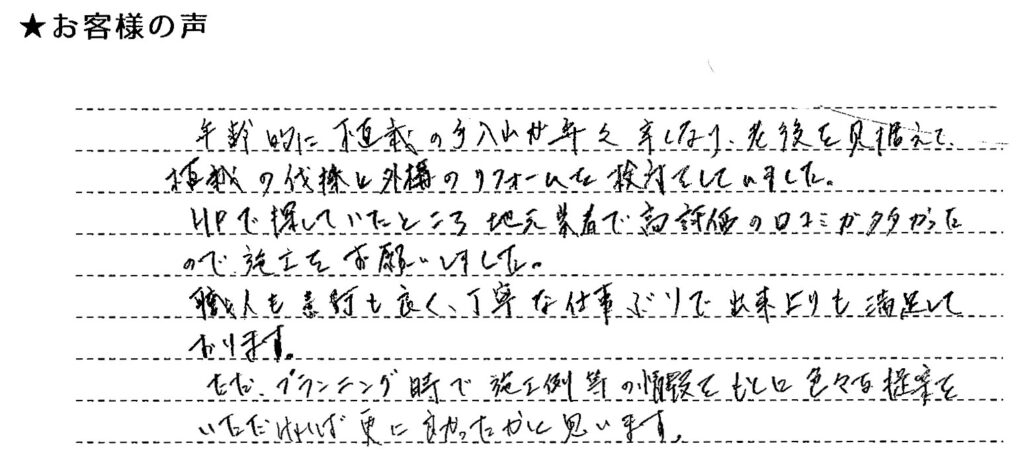 ★お客様の声
年齢的に植栽の手入れが年々辛くなり、老後を見据えて、
植栽の伐採と外構のリフォームを検討をしていました。
HPで探していたところ地元業者で高評価の口コミが多かった
ので施工をお願いしました。
職人も感じも良く、丁寧な仕事ぶりで出来上りも満足して
おります。
ただ、プランニング時で施工例等の情報をもとに色々な提案を
いただければ更に良かったかと思います。